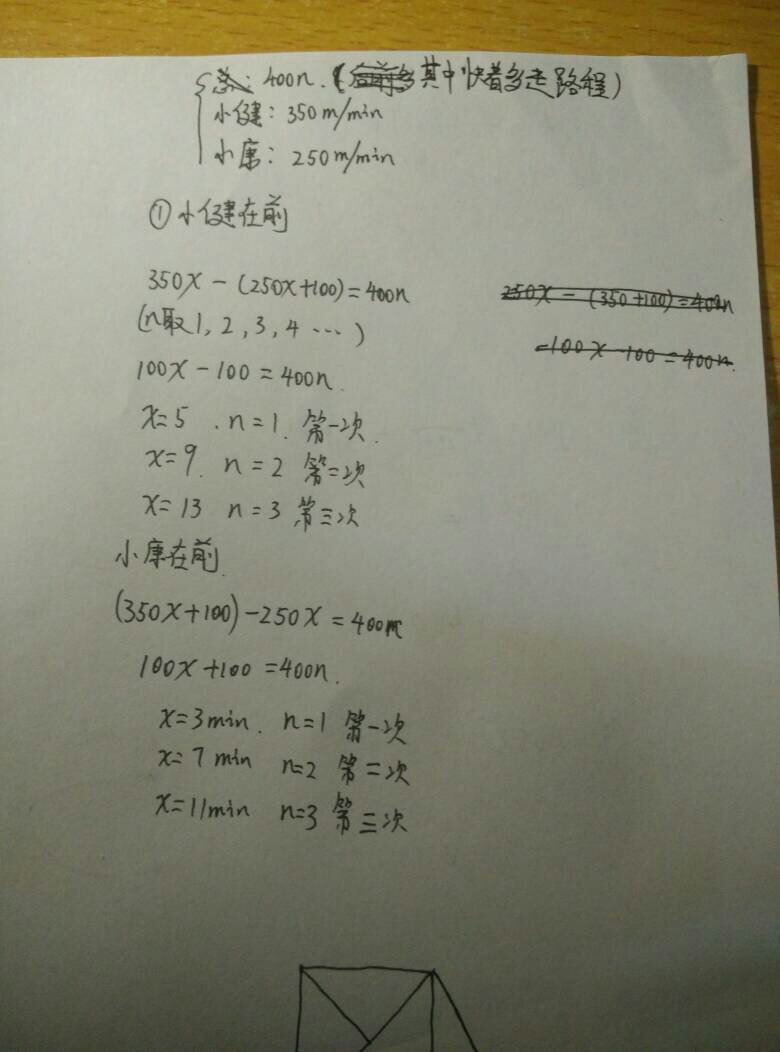 400n.（其中快着多走路程）
小健：350m/min
小康：250m/min
①小健在前
350x-(250x+100)=400n
(n取1,2,3,4…)
100x-100=400n.
x=5 . n=1. 第一次.
x=9. n=2 第二次
x=13 n=3 第三次
250x-(350+100)=400n
-100x-100=400n.
小康在前.
(350x+100)-250x=400n
100x+100=400n.
x=3min. n=1 第一次
x=7min n=2 第二次
x=11min n=3 第三次